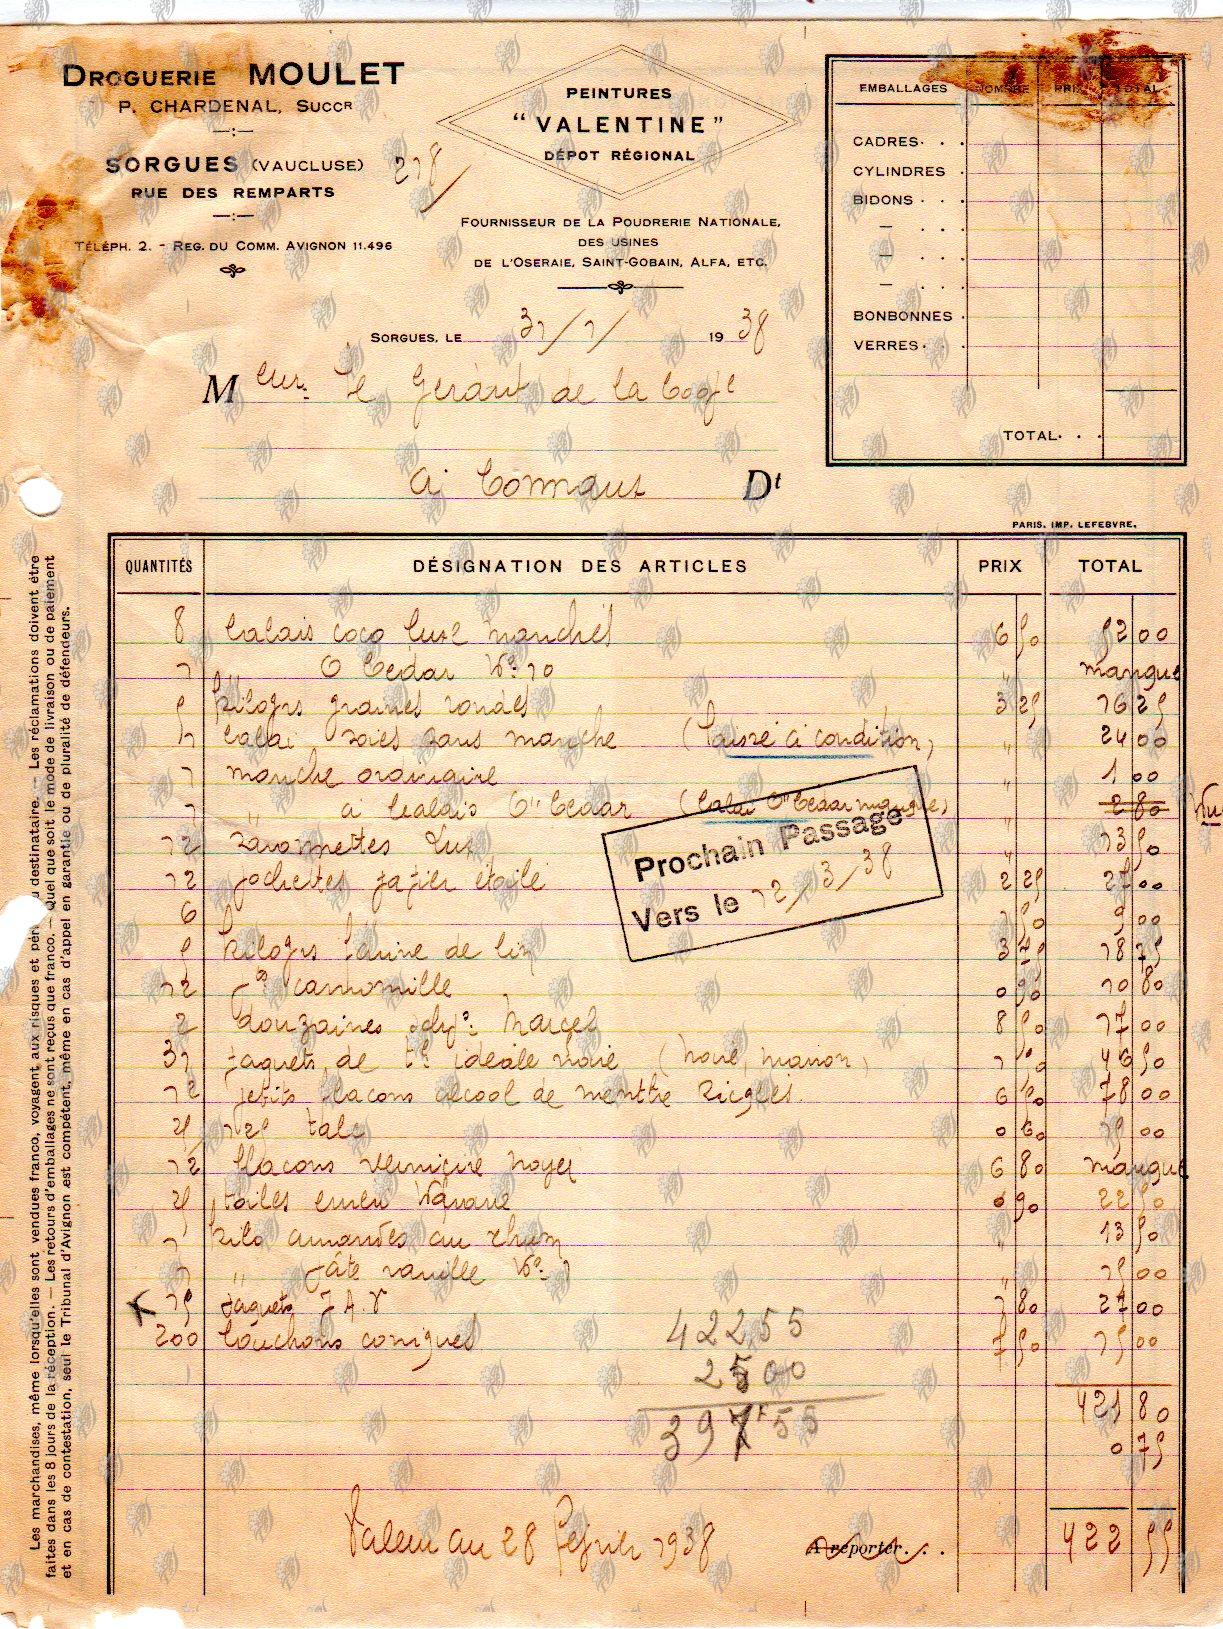 DROGUERIE MOULET
P. CHARDENAL, SUCCR
SORGUES (VAUCLUSE)
RUE DES REMPARTS
TÉLÉPH. 2. - REG. DU COMM. AVIGNON 11.496
PEINTURES
"VALENTINE"
DÉPOT RÉGIONAL
FOURNISSEUR DE LA POUDRERIE NATIONALE,
DES USINES
DE L'OSERAIE, SAINT-GOBAIN, ALFA, ETC.
218
EMBALLAGES NOMBRE PRIX TOTAL
CADRES. . .
CYLINDRES .
BIDONS . . .
— . . .
— . . .
— . . .
BONBONNES .
VERRES. . .
TOTAL. . .
SORGUES, LE 31/1/ 1938
Meur. Le Gérant de la Coopé
à Comaux Dt
PARIS. IMP. LEFEBVRE.
QUANTITÉS DÉSIGNATION DES ARTICLES PRIX TOTAL
8 balais coco luxe manchés 6 50 52 00
1 " O Cedar No 10 " manque
5 kilogrs graines rondes 3 25 16 25
1 balai soies sans manche (laissé à condition) " 24 00
1 manche ordinaire " 1 00
1 " à balais O'' Cedar (balai O'' Cedar manque) " 2 80
12 savonnettes Lux " 13 50
12 pochettes papier étoile 2 25 27 00
6 1 50 9 00
5 kilogrs farine de lin 3 75 18 75
12 camomille 0 90 10 80
2 douzaines Marcel 8 50 17 00
31 paquets de idéale noire (noire, marron) 1 50 46 50
12 petits flacons alcool de menthe Ricqles. 6 50 78 00
25 talc 0 60 15 00
12 flacons noyer 6 80 manque
25 toiles émeri 0 90 22 50
1 kilo amandes au rhum " 13 50
1 " pâte vanille No 1 " 15 00
15 paquets 1 80 27 00
200 bouchons coniques 7 50 15 00
Prochain Passage
Vers le 12/3/38
42255
2500
397 55
421 80
0 75
Valeur au 28 Février 1938
A reporter. . .
422 55
Les marchandises, même lorsqu'elles sont vendues franco, voyagent aux risques et destinataire. — Les réclamations doivent être
faites dans les 8 jours de la réception. — Les retours d'emballages ne sont reçus que franco. — Quel que soit le mode de livraison ou de paiement
et en cas de contestation, seul le Tribunal d'Avignon est compétent, même en cas d'appel en garantie ou de pluralité de défendeurs.